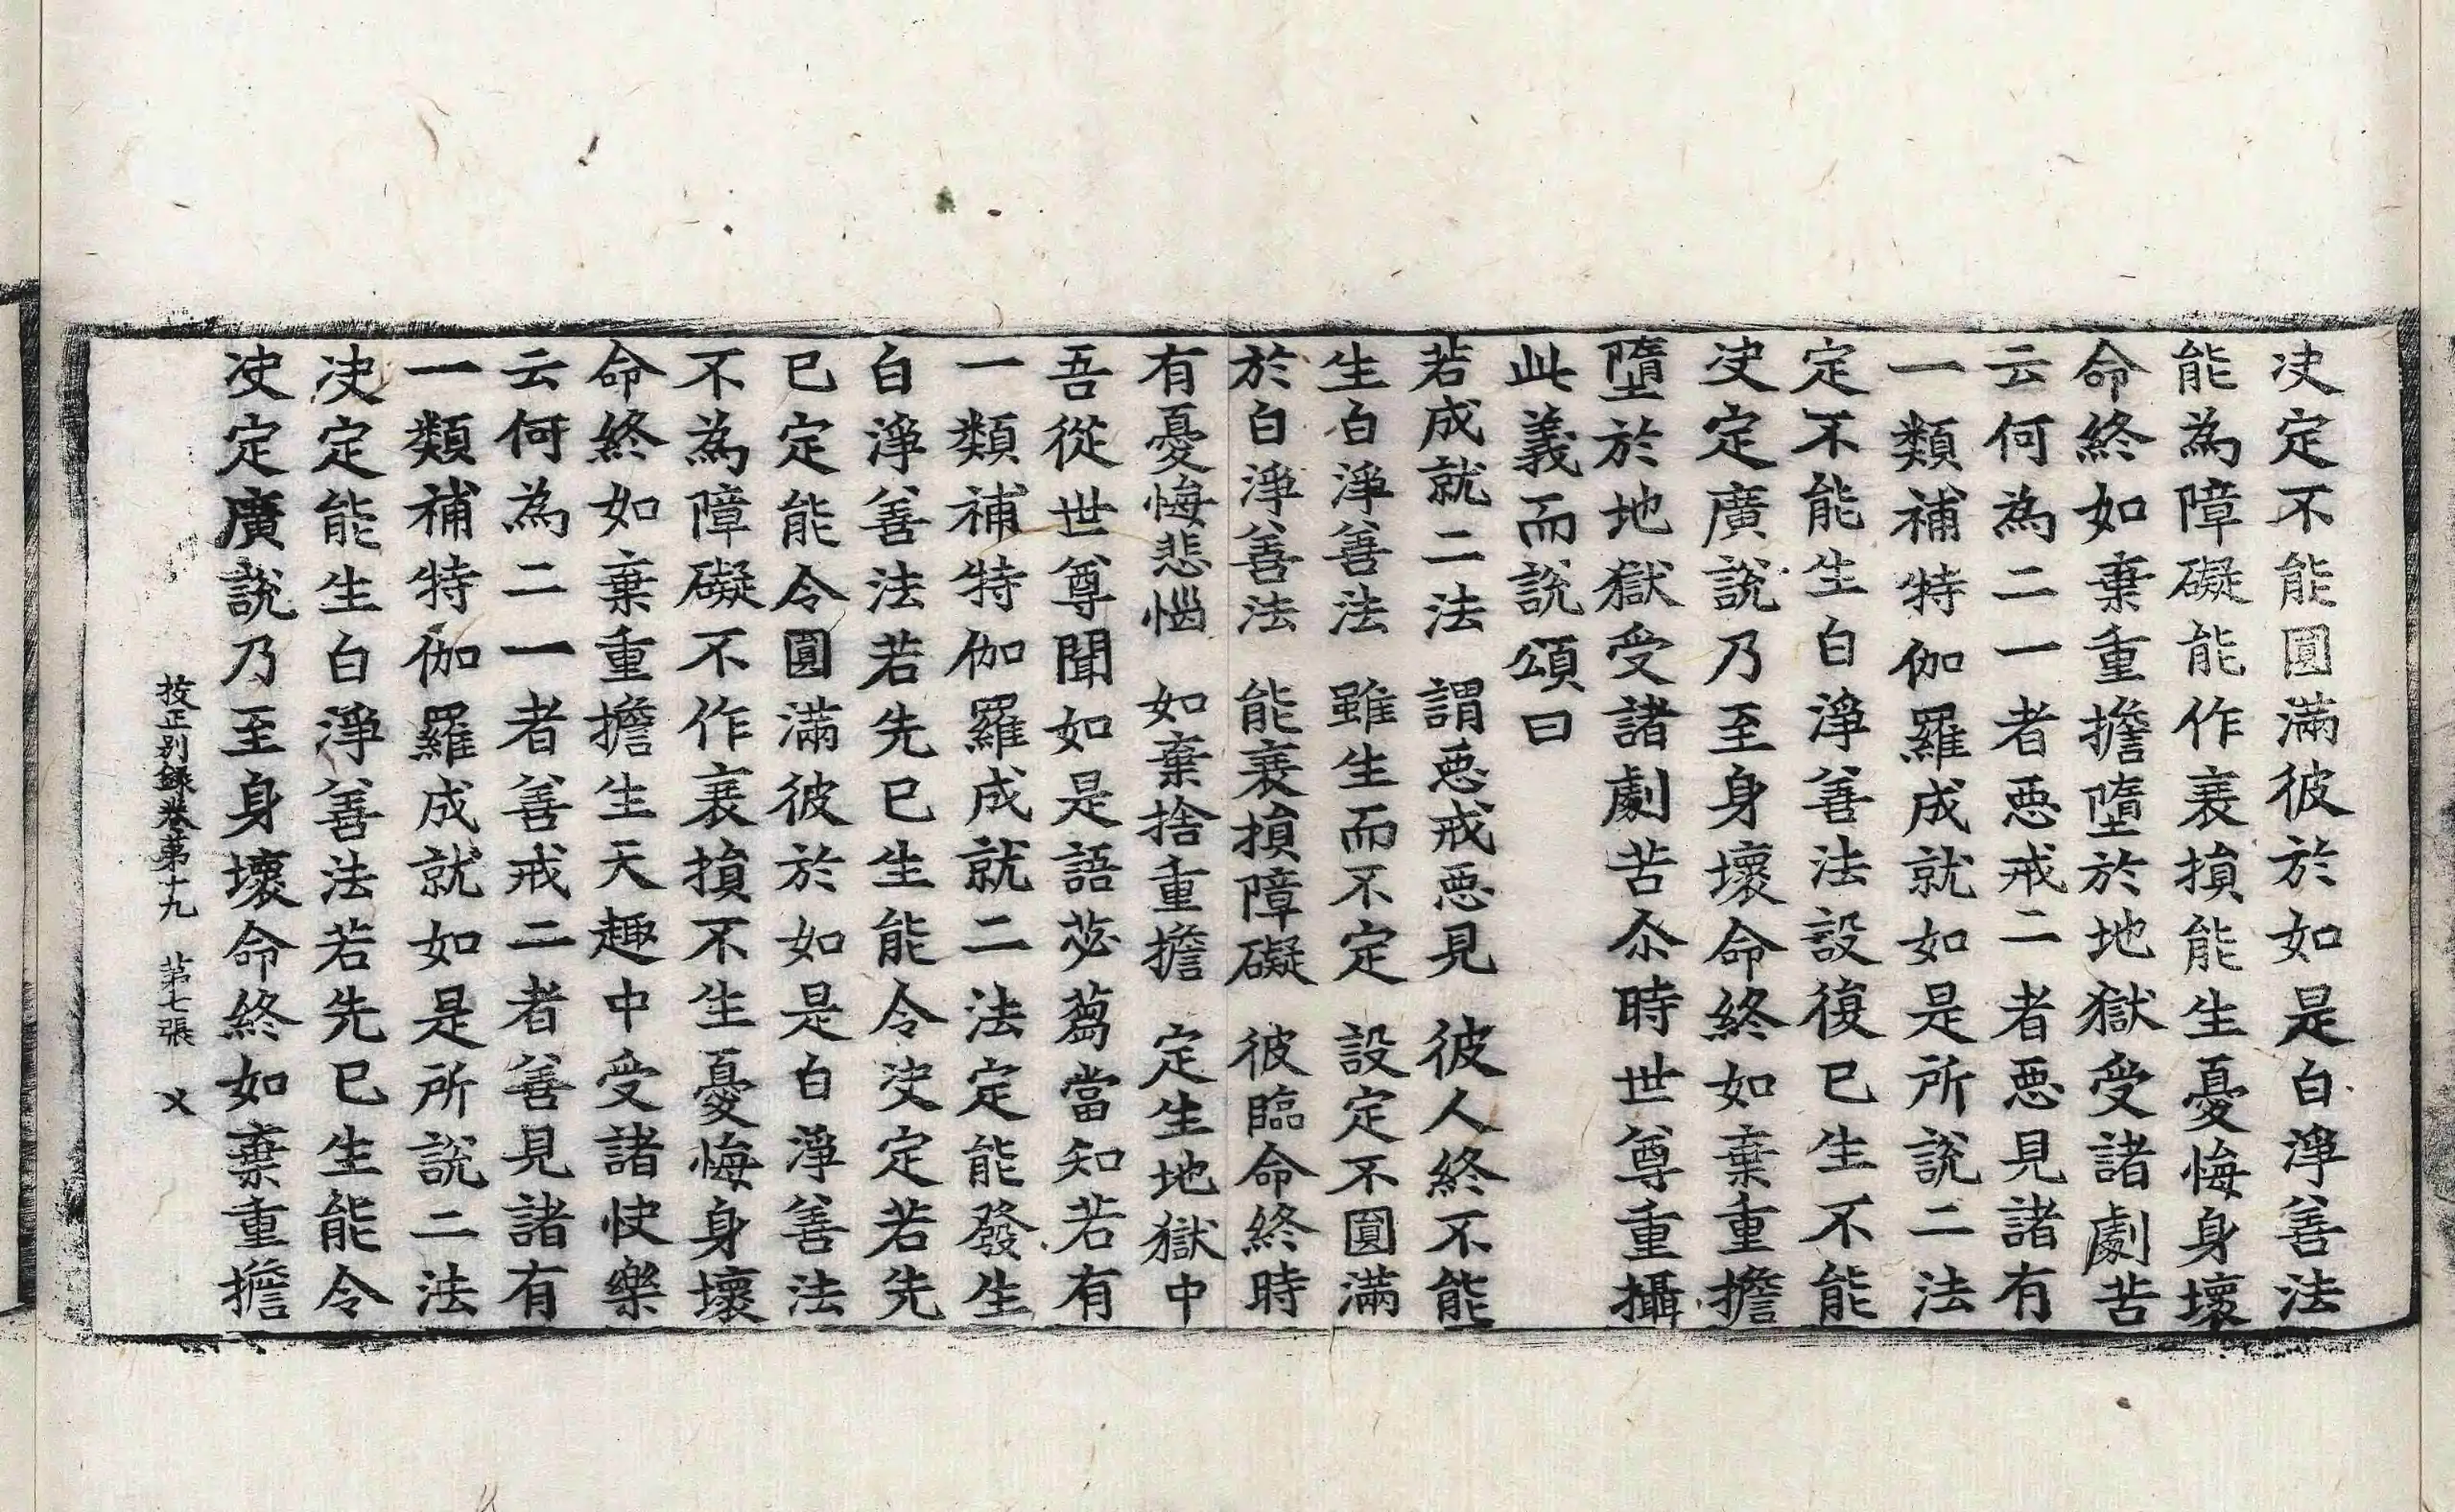 决定不能圓滿彼於如是白淨善法
能為障礙能作衰損能生憂悔身壞
命終如棄重擔墮於地獄受諸劇苦
云何為二一者惡戒二者惡見諸有
一類補特伽羅成就如是所說二法
定不能生白淨善法設復已生不能
决定廣說乃至身壞命終如棄重擔
墮於地獄受諸劇苦尒時世尊重攝
此義而說頌曰
若成就二法　謂惡戒惡見　彼人終不能
生白淨善法　雖生而不定　設定不圓滿
於白淨善法　能衰損障礙　彼臨命終時
有憂悔悲惱　如棄捨重擔　定生地獄中
吾從世尊聞如是語苾蒭當知若有
一類補特伽羅成就二法定能發生
白淨善法若先已生能令决定若先
已定能令圓滿彼於如是白淨善法
不為障礙不作衰損不生憂悔身壞
命終如棄重擔生天趣中受諸快樂
云何為二一者善戒二者善見諸有
一類補特伽羅成就如是所說二法
决定能生白淨善法若先已生能令
决定廣說乃至身壞命終如棄重擔
挍正別錄卷第十九　第七張　乂